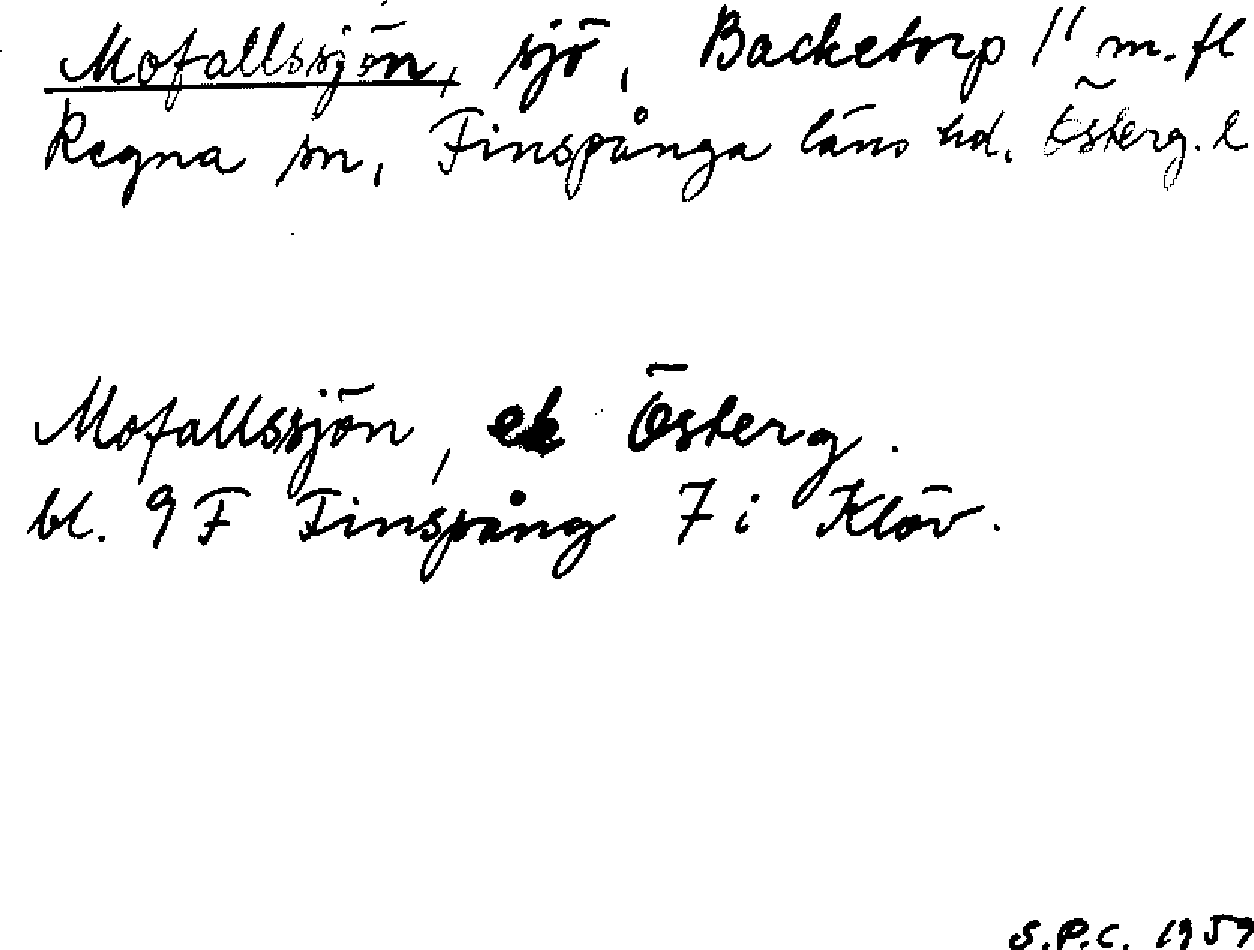 Mofallssjön, sjö, Backetorp 1¹ m.fl
Regna sn, Finspånga läns hd. Österg. l
Mofallssjön, ek Österg.
bl. 9F Finspång 7 i Klöv.
S.P.C. 1959